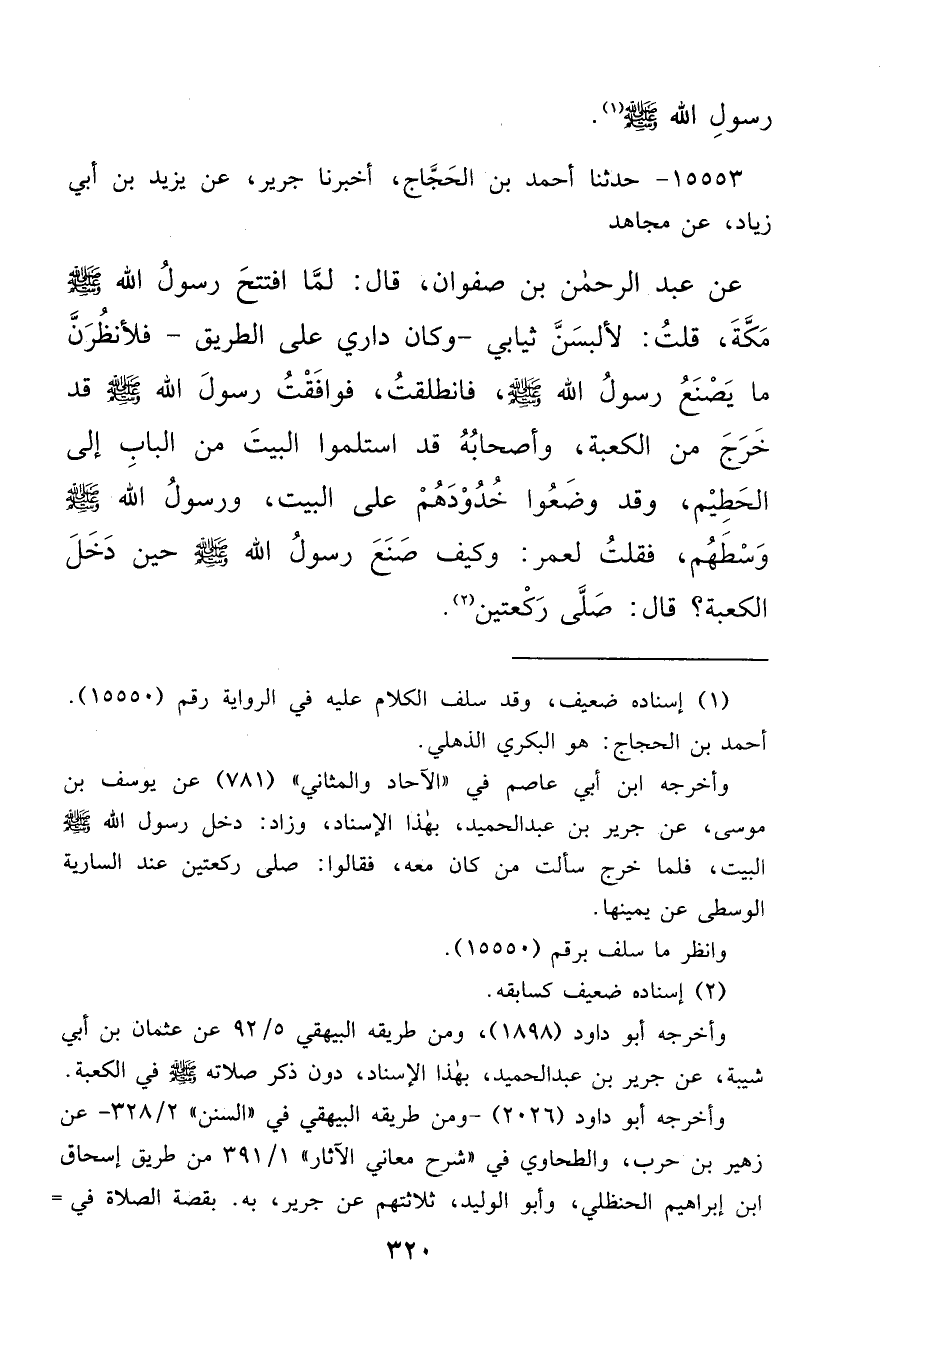 رسولِ الله ﷺ(١).
١٥٥٥٣- حدثنا أحمد بن الحَجَّاج، أخبرنا جرير، عن يزيد بن أبي
زياد، عن مجاهد
عن عبد الرحمٰن بن صفوان، قال: لمَّا افتتحَ رسولُ الله ﷺ
مَكَّةَ، قلتُ: لألبسَنَّ ثيابي -وكان داري على الطريق - فلأنظُرَنَّ
ما يَصْنَعُ رسولُ الله ﷺ، فانطلقتُ، فوافَقْتُ رسولَ الله ﷺ قد
خَرَجَ من الكعبة، وأصحابُهُ قد استلموا البيتَ من البابِ إلى
الحَطِيْمِ، وقد وضَعُوا خُدُوْدَهُمْ على البيت، ورسولُ الله ﷺ
وَسْطَهُم، فقلتُ لعمر: وكيف صَنَعَ رسولُ الله ﷺ حين دَخَلَ
الكعبة؟ قال: صَلَّى رَكْعتين(٢).
(١) إسناده ضعيف، وقد سلف الكلام عليه في الرواية رقم (١٥٥٥٠).
أحمد بن الحجاج: هو البكري الذهلي.
وأخرجه ابن أبي عاصم في «الآحاد والمثاني» (٧٨١) عن يوسف بن
موسى، عن جرير بن عبدالحميد، بهٰذا الإسناد، وزاد: دخل رسول الله ﷺ
البيت، فلما خرج سألت من كان معه، فقالوا: صلى ركعتين عند السارية
الوسطى عن يمينها.
وانظر ما سلف برقم (١٥٥٥٠).
(٢) إسناده ضعيف كسابقه.
وأخرجه أبو داود (١٨٩٨)، ومن طريقه البيهقي ٩٢/٥ عن عثمان بن أبي
شيبة، عن جرير بن عبدالحميد، بهٰذا الإسناد، دون ذكر صلاته ﷺ في الكعبة.
وأخرجه أبو داود (٢٠٢٦) -ومن طريقه البيهقي في «السنن» ٣٢٨/٢- عن
زهير بن حرب، والطحاوي في «شرح معاني الآثار» ٣٩١/١ من طريق إسحاق
ابن إبراهيم الحنظلي، وأبو الوليد، ثلاثتهم عن جرير، به. بقصة الصلاة في =
٣٢٠